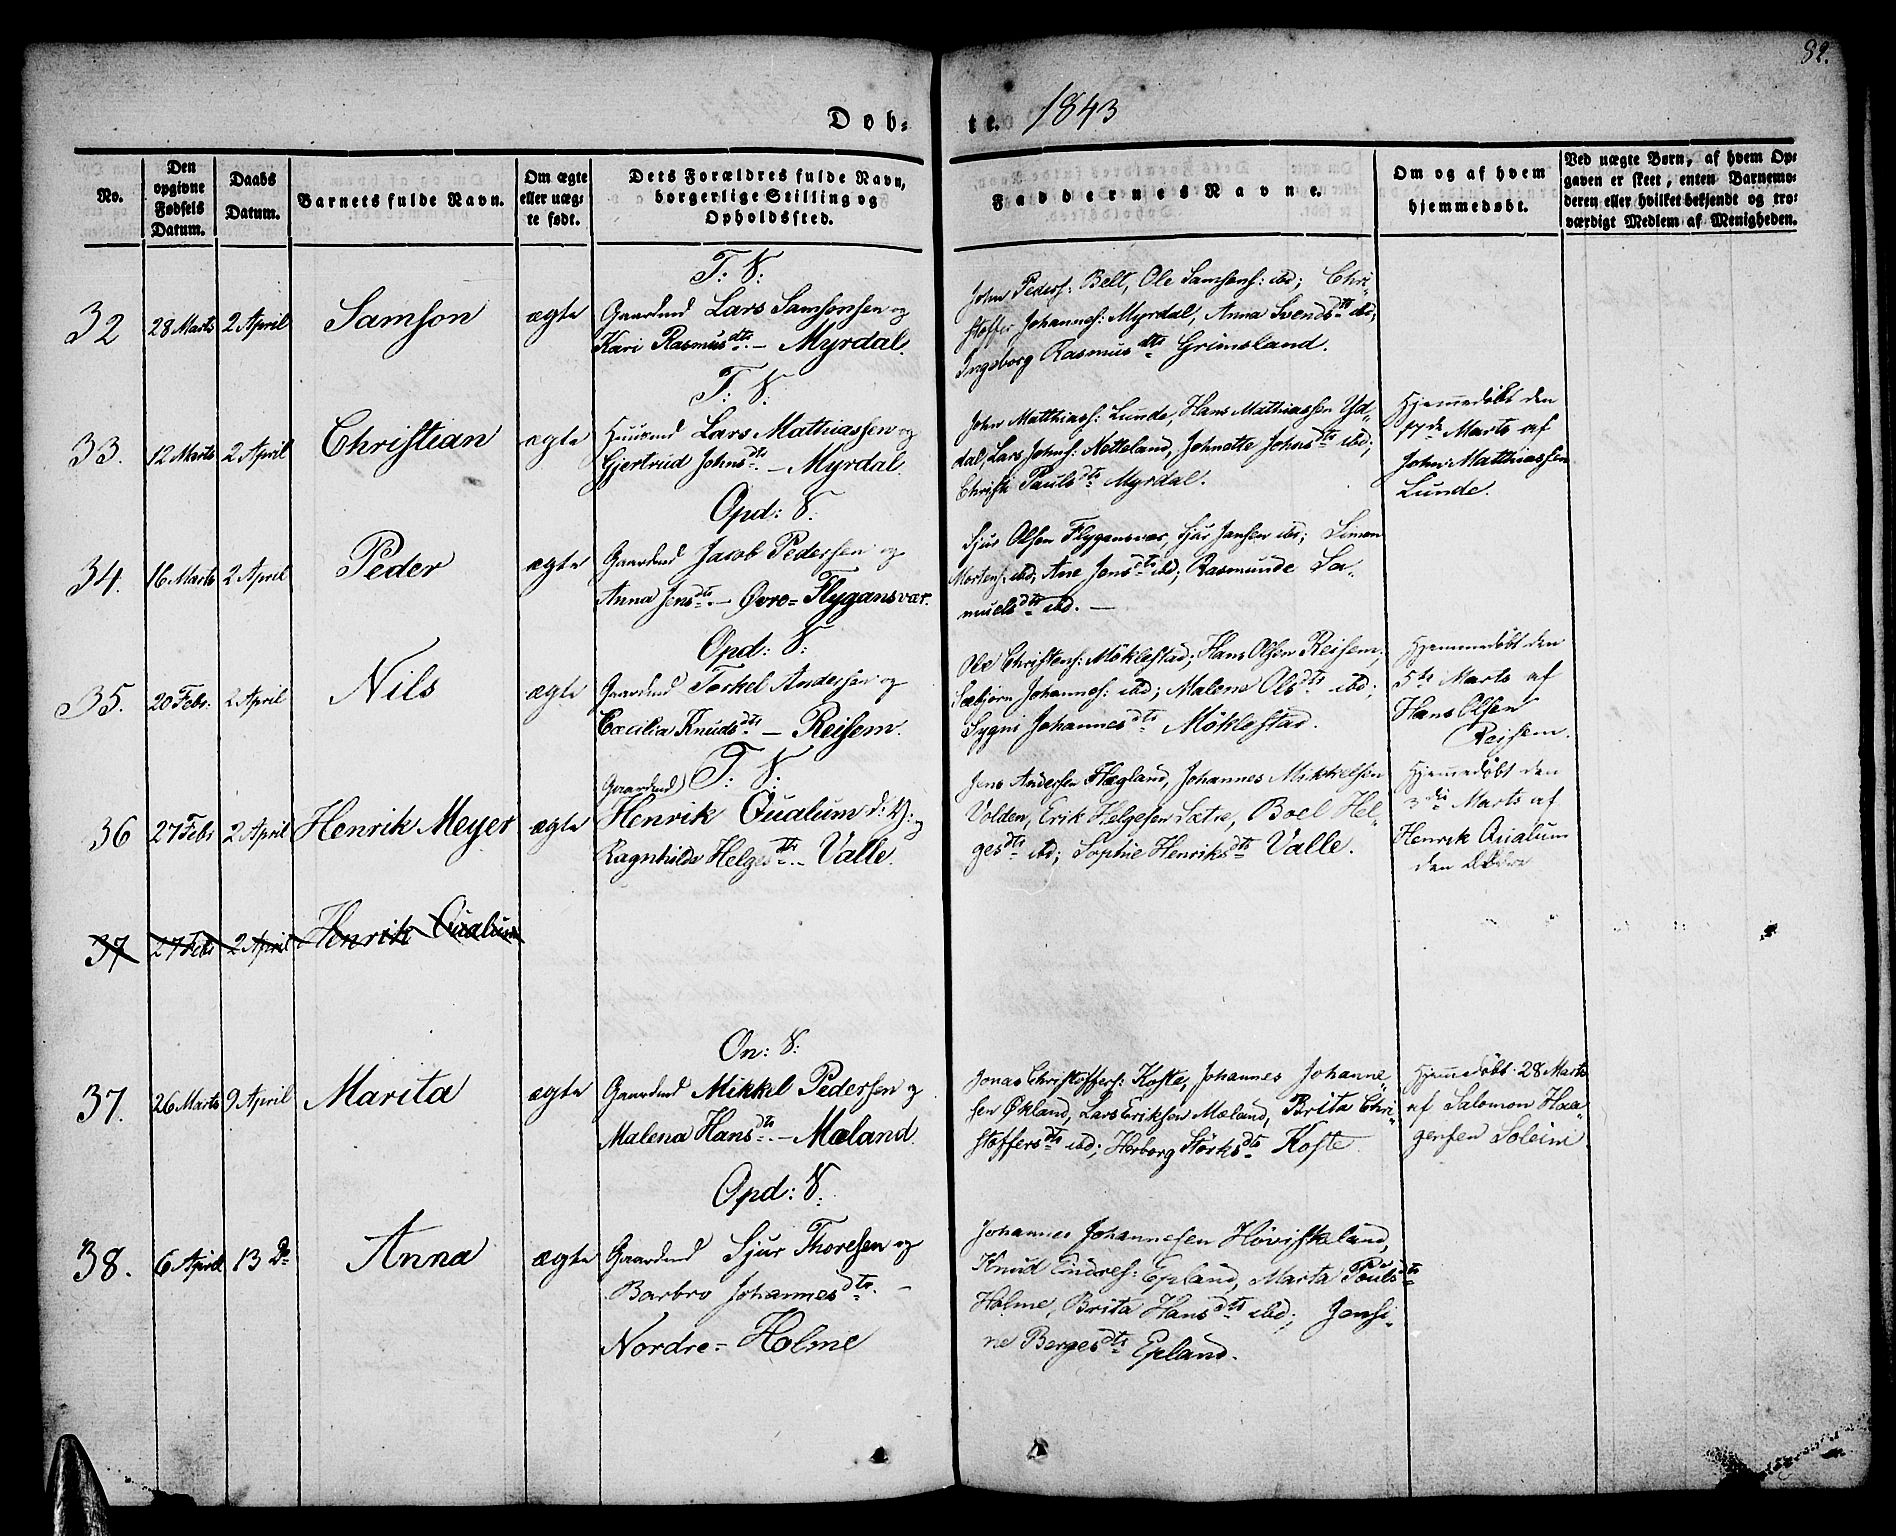 82.
Døb=
te. 1843
No.
Den
opgivne
Fødsels
Datum.
Daabs
Datum.
Barnets fulde Navn.
Om ægte
eller uæg-
te født.
Dets Forældres fulde Navn,
borgerlige Stilling og
Opholdssted.
Faddernes Navne.
Om og af hvem
hjemmedøbt.
Ved uægte Børn, af hvem Op-
gaven er skeet, enten Barnemo-
deren eller hvilket bekjendt og tro-
værdigt Medlem af Menigheden.
T: S:
32 28 Marts 2 April Samson ægte
Gaardmd Lars Samsonsen og
Kari Rasmusdtr. – Myrdal.
John Peders: Belt, Ole Samsons: ibd; Chri-
stoffer Johannes: Myrdal, Anna Svendsdtr ibd;
Ingeborg Rasmusdtr Grimsland.
T: S:
33. 12 Marts 2 April Christian ægte
Huusmd Lars Mathiassen og
Gjertrud Johnsdtr. – Myrdal.
John Matthias: Lunde, Hans Mathiassen Yd-
dal, Lars Johns: Netteland, Johnette Johnsdtr ibd;
Christi Paulsdtr Myrdal.
Hjemmedøbt den
17de Marts af
John Matthiassen
Lunde.
Opd: S:
34. 16 Marts 2 April Peder ægte
Gaardmd Jacob Pedersen og
Anna Jensdtr. – Øvre= Flygansvær.
Sjur Olsen Flygansvær, Sjur Jansen ibd; Simon
Mortens: ibd; Ane Jensdtr ibd; Rasmunde Sa-
muelsdtr ibd. –
Opd: S:
35. 20 Febr: 2 April Nils ægte
Gaardmd Torkel Andersen og
Cæcilia Knudsdtr – Reisem.
Ole Christens: Möklestad; Hans Olsen Reisem;
Sæbjørn Johannes: ibd; Malene Olsdtr ibd;
Sygni Johannesdtr Möklestad.
Hjemmedøbt den
5te Marts af
Hans Olsen
Reisem.
Gaardmd T: S:
36 27 Febr 2 April Henrik Meyer ægte
Henrik Qualum d: y: og
Ragnhilde Helgesdtr. – Valle.
Jens Andersen Hægland, Johannes Mikkelsen
Volden, Erik Helgesen Sætre, Boel Hel-
gesdtr ibd; Sophie Henriksdtr Valle.
Hjemmedøbt den
3die Marts af
Henrik Qualum
den Ældre
37 27 Febr 2 April Henrik Qualum
On: S:
37. 26 Marts 9 April Marita ægte
Gaardmd Mikkel Pedersen og
Malena Hansdtr. – Mæland.
Jonas Christoffers: Koste, Johannes Johanne-
sen Økland, Lars Eriksen Mæland, Brita Chri-
stoffersdtr ibd; Herborg Störksdtr Koste.
Hjemmedøbt 28 Marts
af Salomon Haa-
gensen Soleim
Opd: S:
38. 6 April 13 Do Anna ægte
Gaardmd Sjur Thoresen og
Barbro Johannesdtr. –
Nordre= Holme
Johannes Johannesen Höviskeland,
Knud Endres: Epland, Marta Poulsdtr
Holme, Brita Hansdtr ibd; Jensi-
ne Bergesdtr Epland.